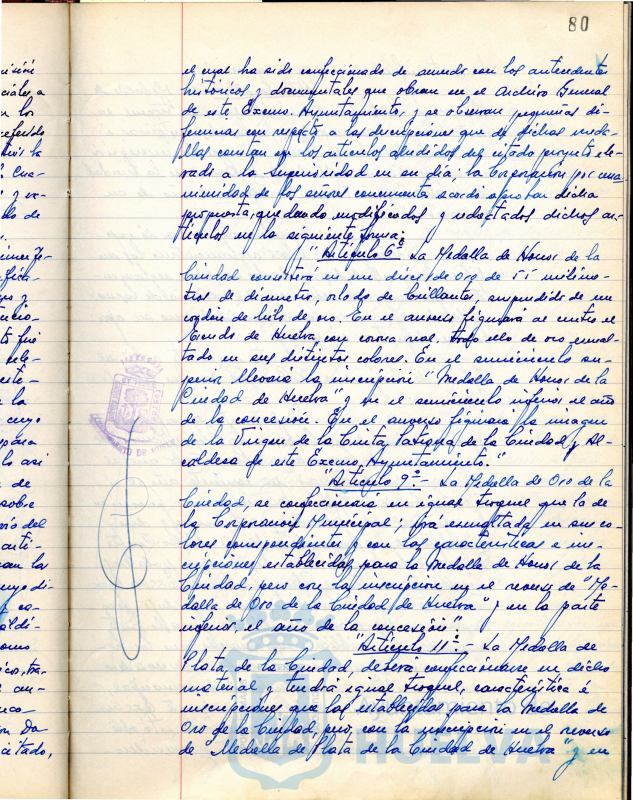 80
el cual ha sido confeccionado de acuerdo con los antecedentes
históricos y documentales que obran en el Archivo General
de este Excmo. Ayuntamiento, y se observan pequeñas di-
ferencias con respecto a las descripciones que de dichas meda-
llas constan en los artículos aludidos del citado proyecto ele-
vado a la Superioridad en su día; la Corporación por una-
nimidad de los señores concurrentes acordó aprobar dicha
propuesta, quedando modificados y redactados dichos ar-
tículos en la siguiente forma:
"Artículo 6º La Medalla de Honor de la
Ciudad consistirá en un disco de Oro de 55 milíme-
tros de diámetro, orlado de brillantes, suspendido de un
cordón de hilo de oro. En el anverso figurará al centro el
Escudo de Huelva, con corona real, todo ello de oro esmal-
tado en sus distintos colores. En el semicírculo su-
perior llevará la inscripción "Medalla de Honor de la
Ciudad de Huelva" y en el semicírculo inferior el año
de la concesión. En el anverso figurará la imagen
de la Virgen de la Cinta, Patrona de la Ciudad y Al-
caldesa de este Excmo. Ayuntamiento."
"Artículo 9º - La Medalla de Oro de la
Ciudad, se confeccionará en igual troquel que la de
la Corporación Municipal; será esmaltada en sus co-
lores correspondientes y con las características e ins-
cripciones establecidas para la Medalla de Honor de la
Ciudad, pero con la inscripción en el reverso de "Me-
dalla de Oro de la Ciudad de Huelva" y en la parte
inferior, el año de la concesión".
"Artículo 11º - La Medalla de
Plata, de la Ciudad, deberá confeccionarse en dicho
material y tendrá igual troquel, característica é
inscripciones que las establecidas para la Medalla de
Oro de la Ciudad, pero con la inscripción en el reverso
de "Medalla de Plata de la Ciudad de Huelva" y en
HUELVA